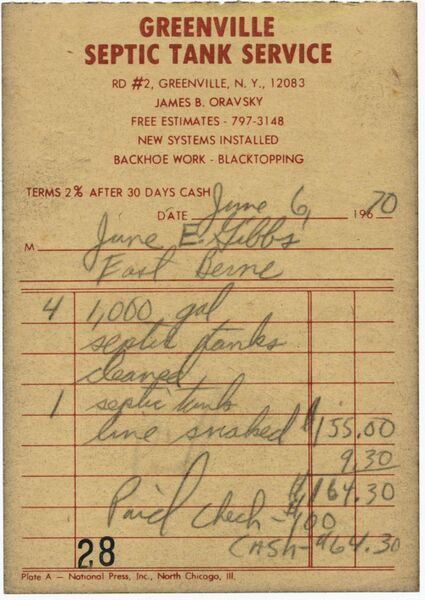 GREENVILLE
SEPTIC TANK SERVICE
RD #2, GREENVILLE, N. Y., 12083
JAMES B. ORAVSKY
FREE ESTIMATES - 797-3148
NEW SYSTEMS INSTALLED
BACKHOE WORK - BLACKTOPPING
TERMS 2% AFTER 30 DAYS CASH
DATE June 6, 196 70
M June E. Gibbs
East Berne
4 1,000 gal
septic tanks
cleaned
1 septic tank
line snaked $155.00
9.30
$164.30
Paid Check - $100
CASH - $64.30
28
Plate A — National Press, Inc., North Chicago, Ill.